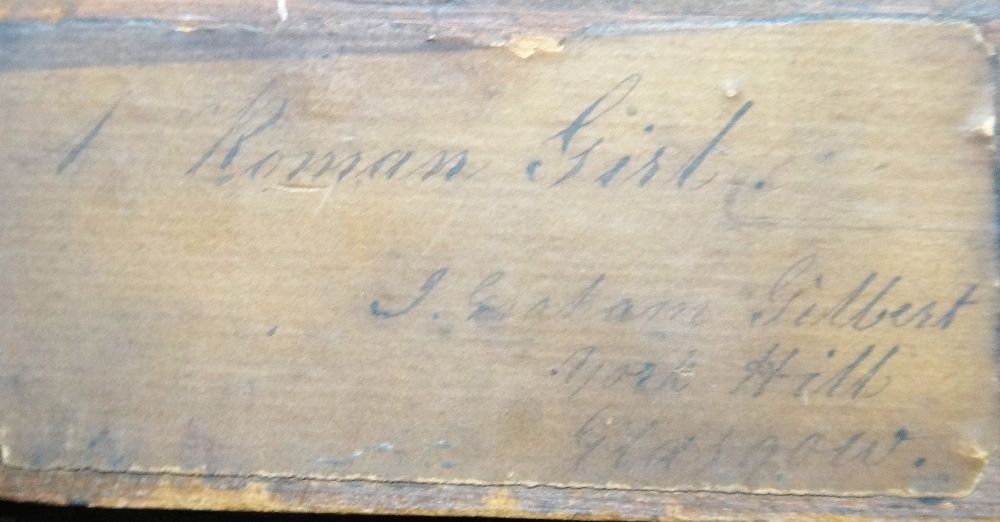 A Roman Girl.
J. Graham Gilbert
York Hill
Glasgow.